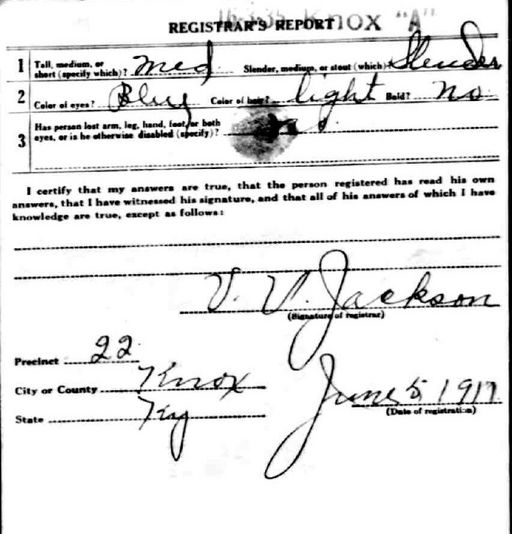 KNOX "A"
REGISTRAR'S REPORT
1 Tall, medium, or short (specify which)? Med Slender, medium, or stout (which)? Slender
2 Color of eyes? Blue Color of hair? light Bald? No
3 Has person lost arm, leg, hand, foot, or both eyes, or is he otherwise disabled (specify)? No
I certify that my answers are true, that the person registered has read his own
answers, that I have witnessed his signature, and that all of his answers of which I have
knowledge are true, except as follows:
V. V. Jackson
(Signature of registrar)
Precinct 22
City or County Knox
State Ky
June 5 1917
(Date of registration)